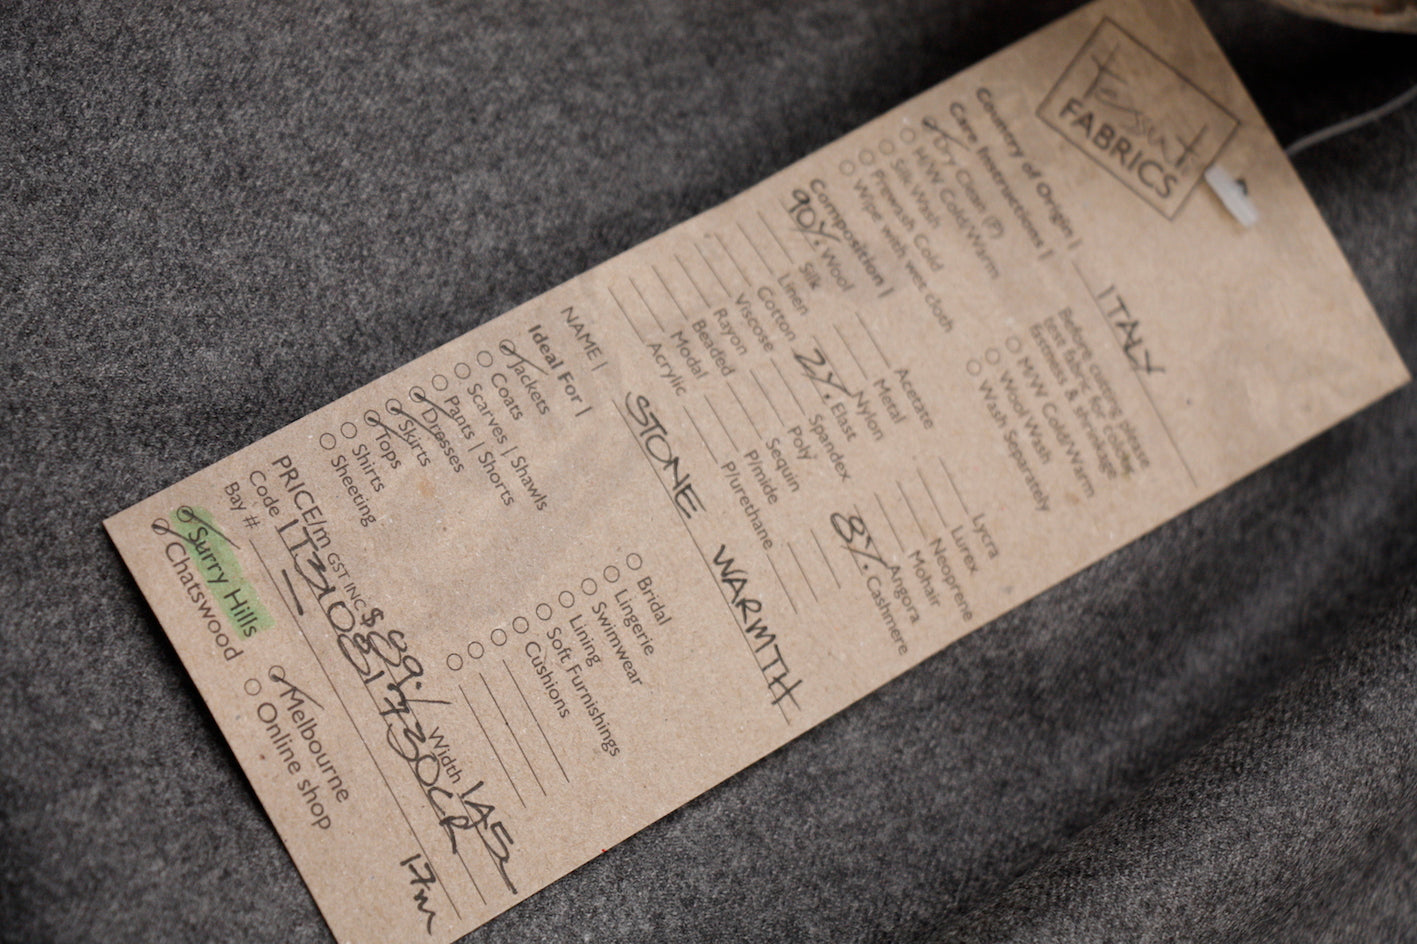 Tessuti
FABRICS
Country of Origin | ITALY
Care Instructions |
Dry Clean (P)
M/W Cold/Warm
Silk Wash
Prewash Cold
Wipe with wet cloth
Before cutting please
test fabric for colour,
fastness & shrinkage
M/W Cold/Warm
Wool Wash
Wash Separately
Composition |
90%. Wool
Silk
Linen
Cotton
Viscose
Rayon
Beaded
Modal
Acrylic
Acetate
Metal
Nylon
2%. Elast
Spandex
Poly
Sequin
P/mide
P/urethane
Lycra
Lurex
Neoprene
Mohair
Angora
8%. Cashmere
NAME | STONE WARMTH
Ideal For |
Jackets
Coats
Scarves | Shawls
Pants | Shorts
Dresses
Skirts
Tops
Shirts
Sheeting
Bridal
Lingerie
Swimwear
Lining
Soft Furnishings
Cushions
PRICE/m GST INC $89./ Width 145
Code
Bay # 17m
Surry Hills
Chatswood
Melbourne
Online shop